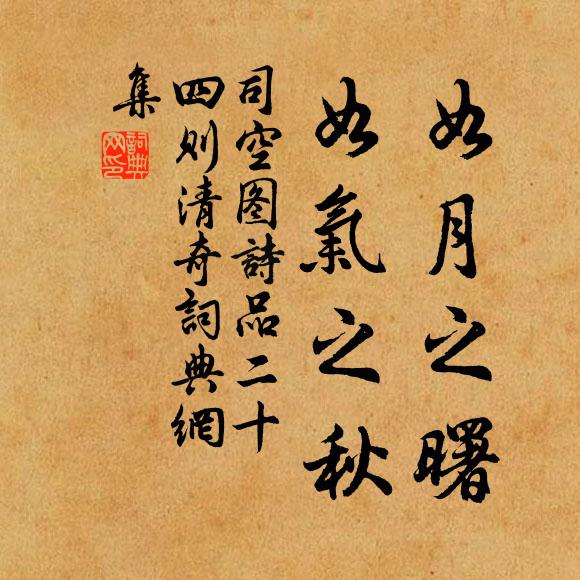 如月之曙
如氣之秋
司空图詩品二十
四则清奇詞典網
集
詞典
网印